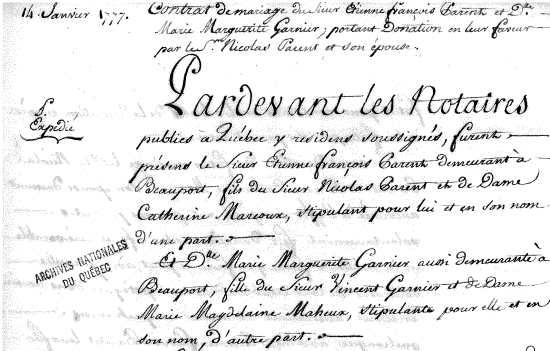 14. Janvier 1777.
Contrat de mariage du Sieur Etienne françois Parent et D.lle
Marie Marguerite Garnier; portant Donation en leur faveur
par le S.r Nicolas Parent et son épouse.
Pardevant les Notaires
Expedié
publics à Québec y residens soussignés, furent
présens le Sieur Etienne françois Parent demeurant à
Beauport, fils du Sieur Nicolas Parent et de Dame
Catherine Marcoux, stipulant pour lui et en son nom
d'une part.
Et D.lle Marie Marguerite Garnier, aussi demeurante à
Beauport, fille du Sieur Vincent Garnier et de Dame
Marie Magdelaine Maheux, stipulante pour elle et en
son nom, d'autre part.
ARCHIVES NATIONALES
DU QUÉBEC